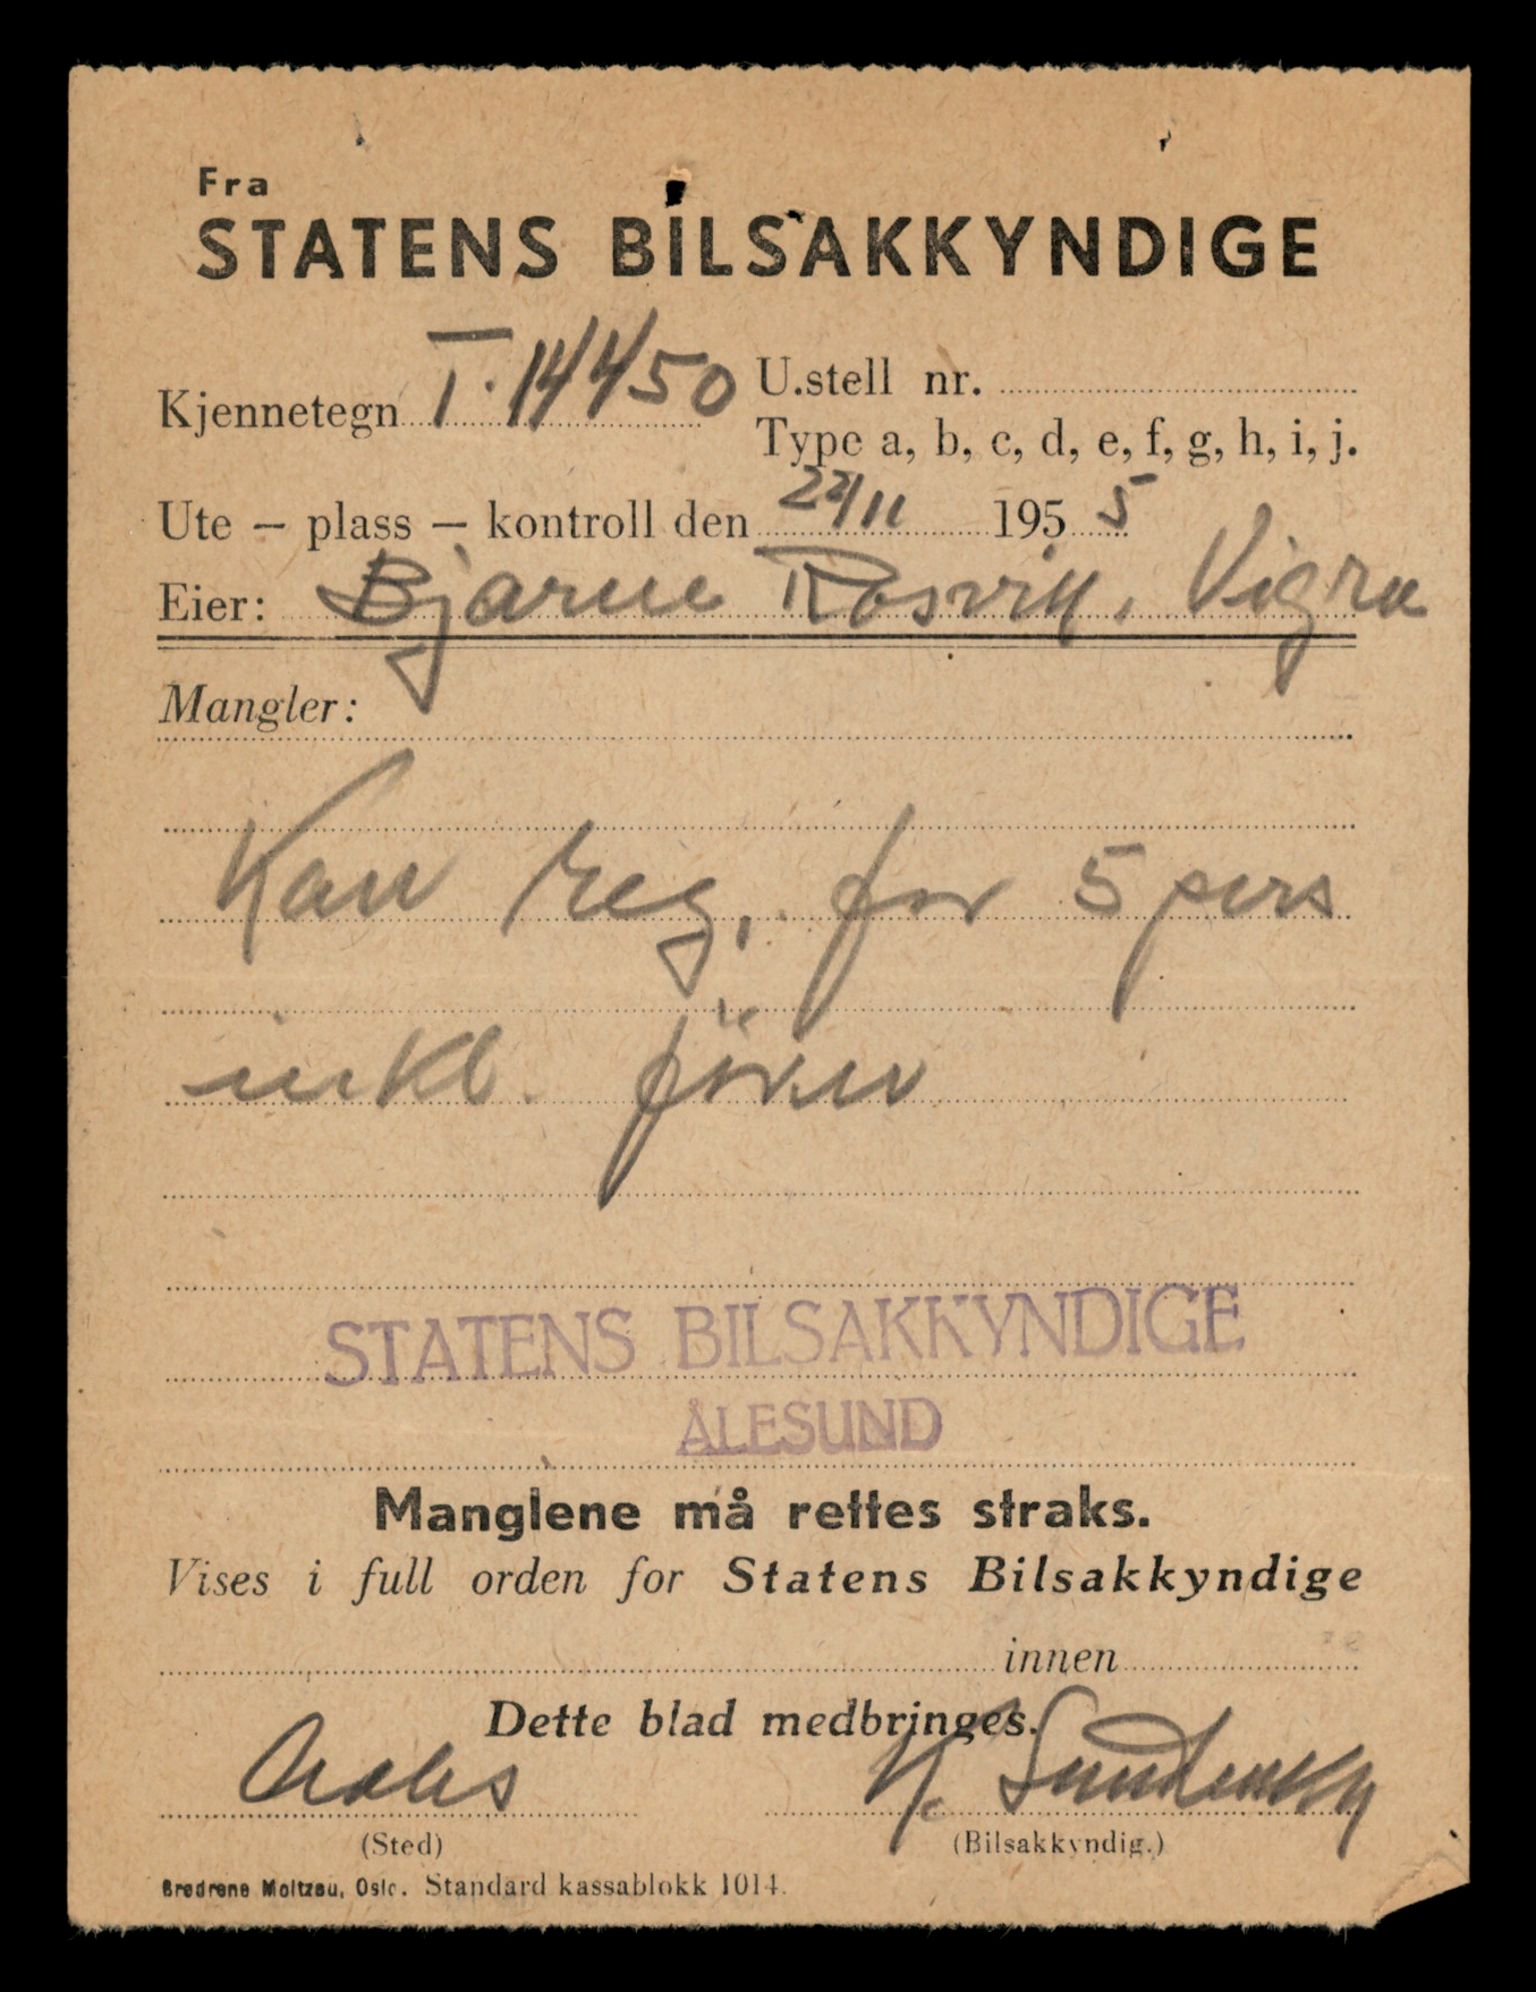 Fra
STATENS BILSAKKYNDIGE
Kjennetegn T.14450
U.stell nr.
Type a, b, c, d, e, f, g, h, i, j.
Ute – plass – kontroll den 22/11 1955
Eier: Bjarne Rosvik, Vigra
Mangler:
Kan reg, for 5 pers
inkl. förer
STATENS BILSAKKYNDIGE
ÅLESUND
Manglene må rettes straks.
Vises i full orden for Statens Bilsakkyndige
innen
Dette blad medbringes.
(Sted) (Bilsakkyndig.)
Brødrene Moltzau, Oslo. Standard kassablokk 1014.